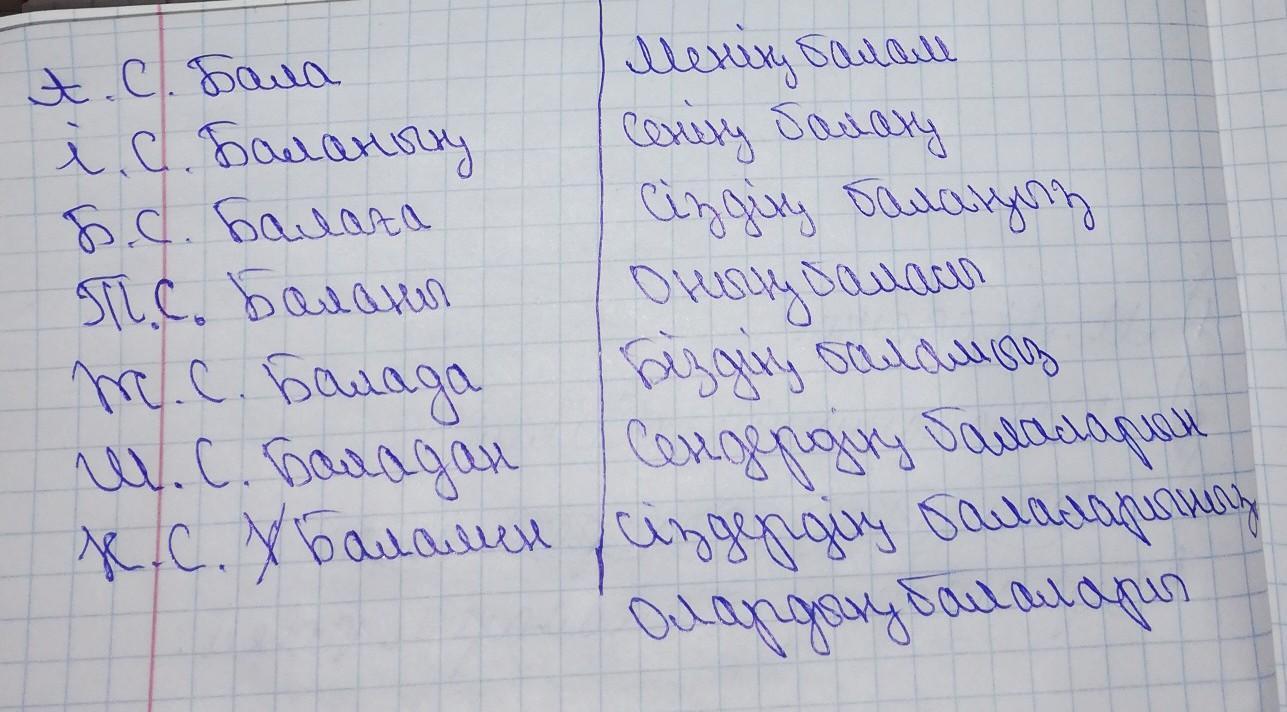 А.С. Бала
І.С. Баланың
Б.С. Балаға
Т.С. Баланы
Ж.С. Балада
Ш.С. Баладан
К.С. Баламен
Менің балам
Сенің балаң
Сіздің балаңыз
Оның баласы
Біздің баламыз
Сендердің балаларың
Сіздердің балаларыңыз
Олардың балалары